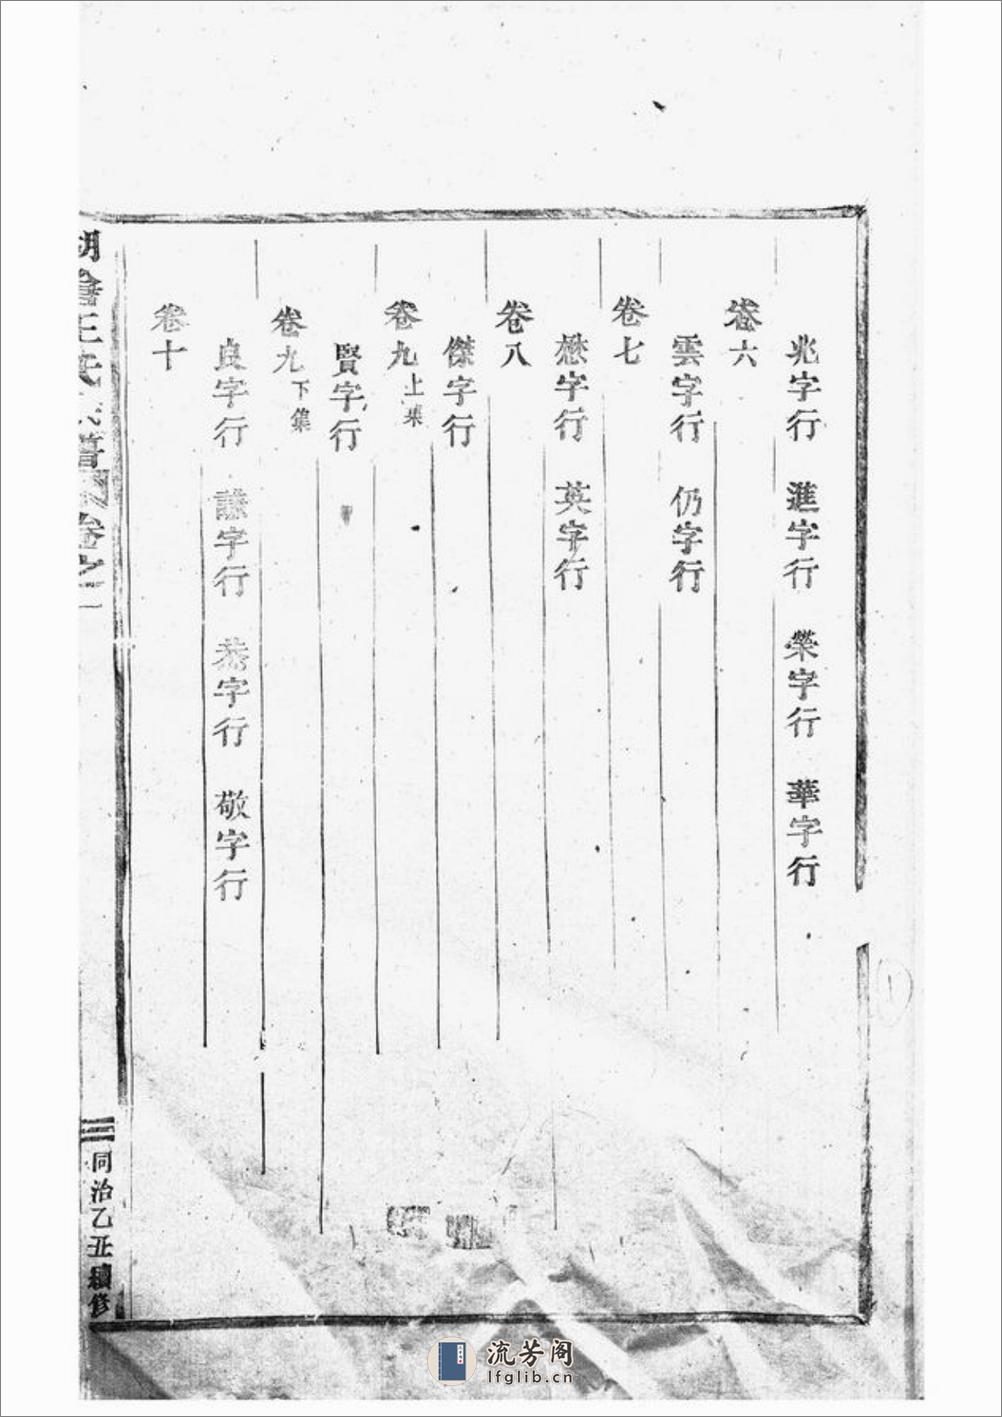 兆字行　進字行　榮字行　華字行
卷六
雲字行　仍字行
卷七
懋字行　英字行
卷八
傑字行
卷九上集
賢字行
卷九下集
良字行　謙字行　恭字行　敬字行
卷十
王氏　譜　卷之一
同治乙丑續修
流芳阁
lfglib.cn